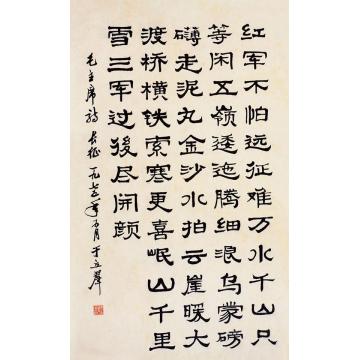 红军不怕远征难万水千山只
等闲五嶺逶迤腾细浪乌蒙磅
礴走泥丸金沙水拍云崖暖大
渡桥横铁索寒更喜岷山千里
雪三军过後尽开颜
毛主席诗长征一九七 年 月于立群